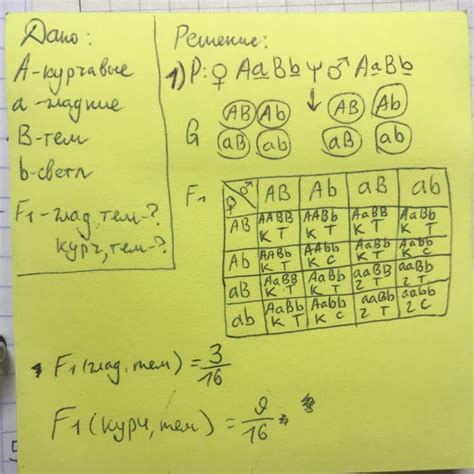 Дано:
А-курчавые
а-гладкие
В-тем
b-светл
F1-глад, тем-?
курч, тем-?
Решение:
1) P: ♀ AaBb ♂ AaBb
G AB Ab aB ab AB Ab aB ab
F1 ♀ ♂ AB Ab aB ab
AB AABB К Т AABb К Т AaBB К Т AaBb К Т
Ab AABb К Т AAbb К С AaBb К Т Aabb К С
aB AaBB К Т AaBb К Т aaBB г Т aaBb г Т
ab AaBb К Т Aabb К С aaBb г Т aabb г С
F1 (глад, тем) = 3/16
F1 (курч, тем) = 9/16